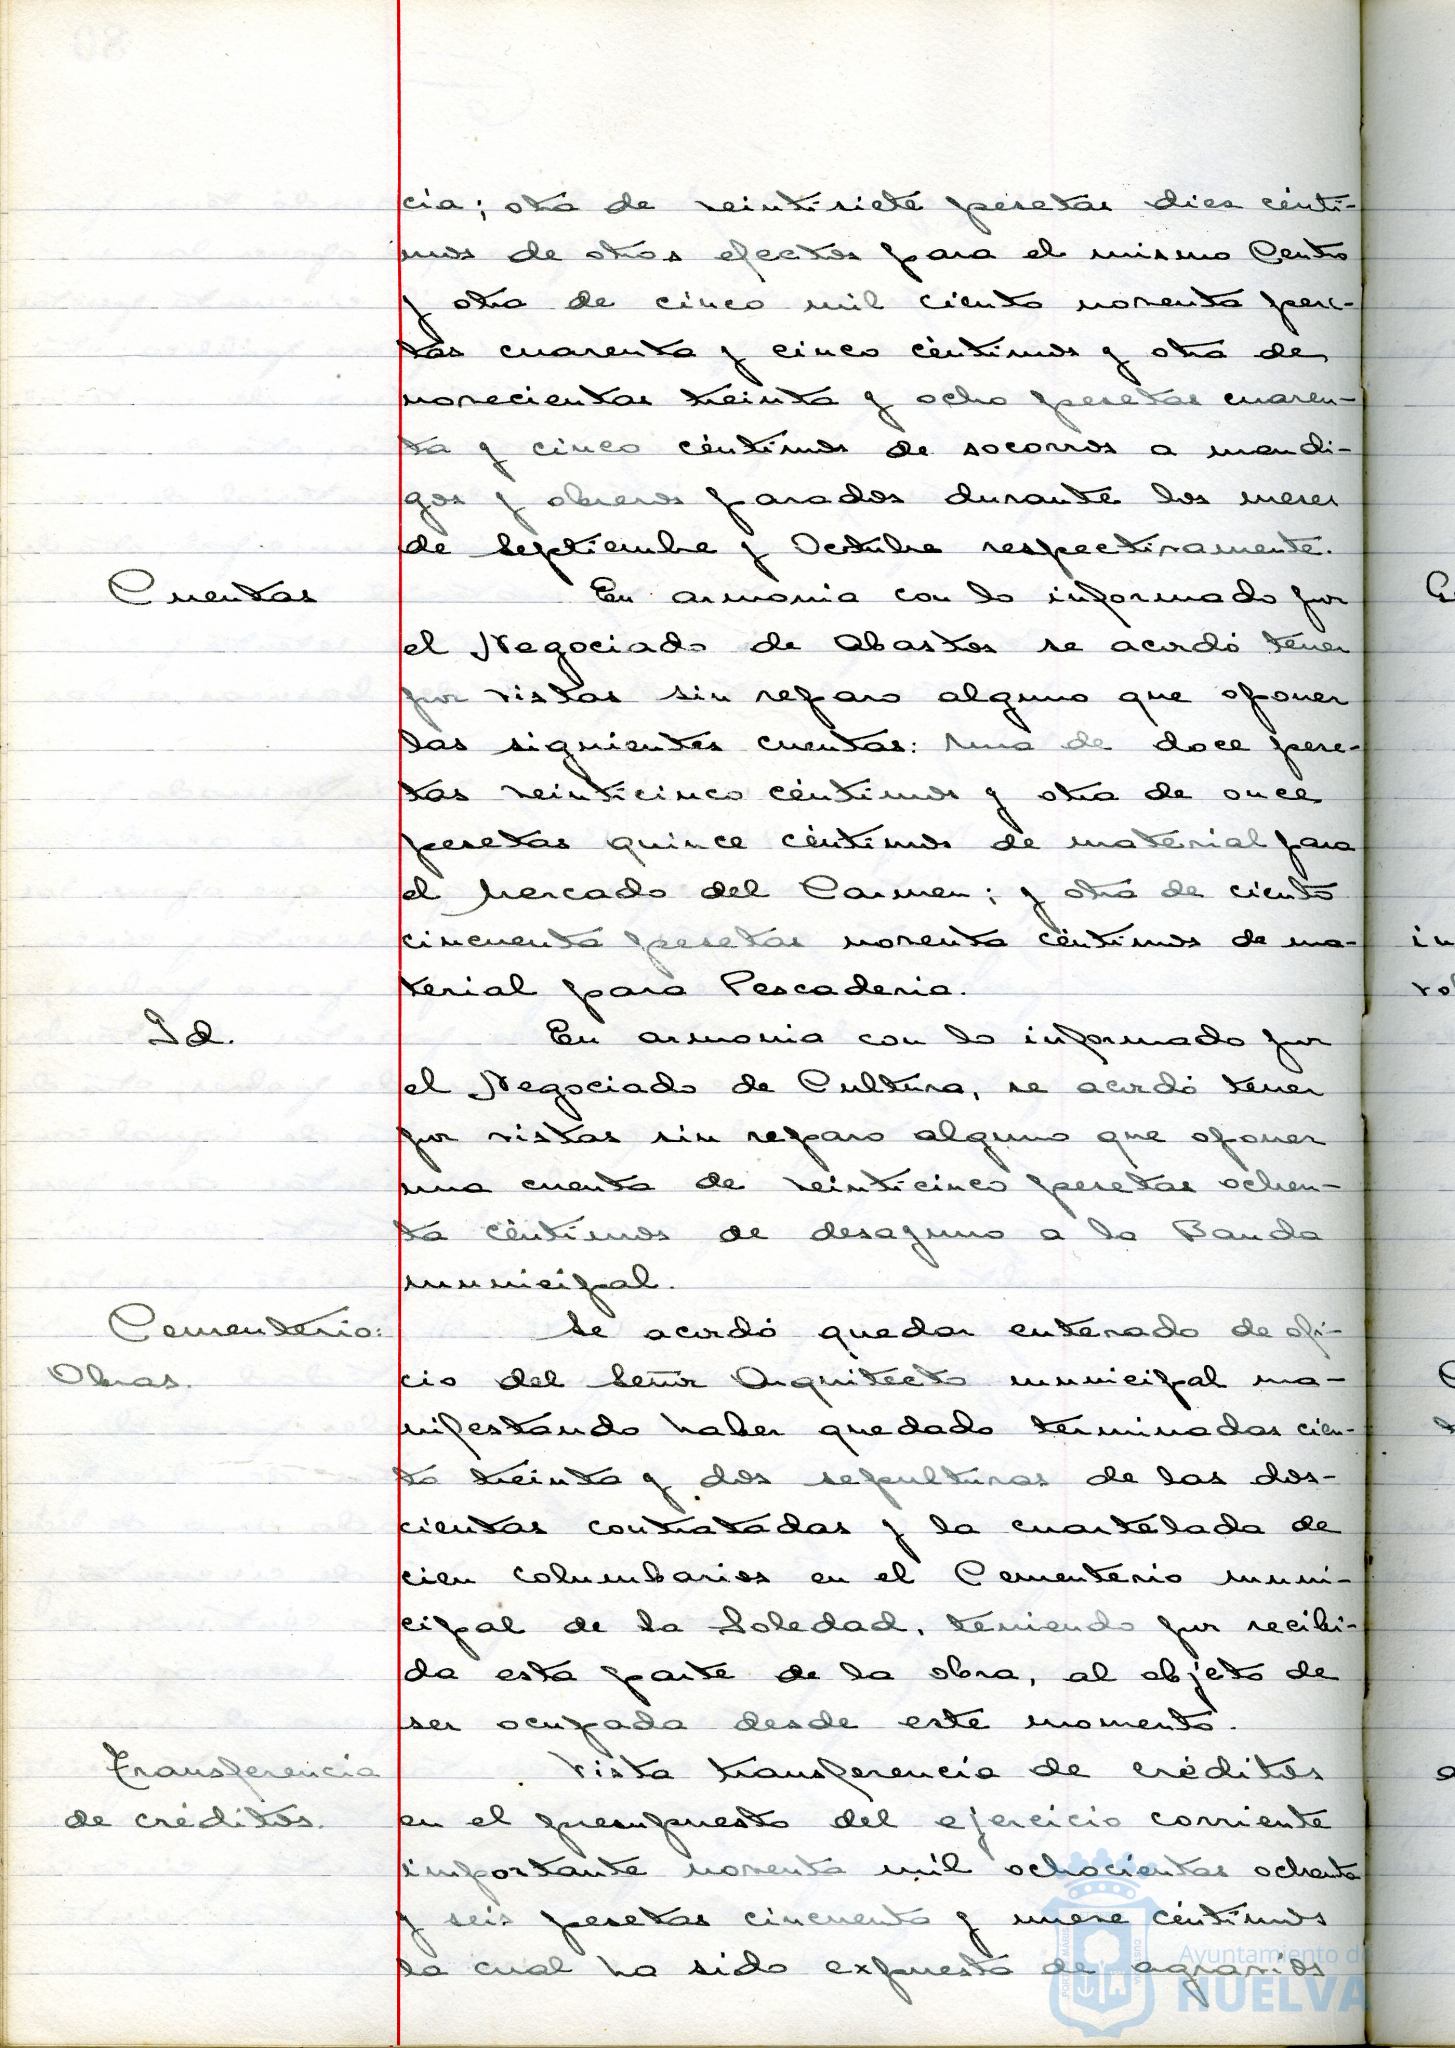 cia; otra de veintisiete pesetas diez cénti-
mos de otros efectos para el mismo Centro
y otra de cinco mil ciento noventa pese-
tas cuarenta y cinco céntimos y otra de
novecientas treinta y ocho pesetas cuaren-
ta y cinco céntimos de socorros a mendi-
gos y obreros parados durante los meses
de Septiembre y Octubre respectivamente.
Cuentas
En armonia con lo informado por
el Negociado de Abastos se acordó tener
por vistas sin reparo alguno que oponer
las siguientes cuentas: Una de doce pese-
tas veinticinco céntimos y otra de once
pesetas quince céntimos de material para
el Mercado del Carmen; y otra de ciento
cincuenta pesetas noventa céntimos de ma-
terial para Pescaderia.
Id.
En armonia con lo informado por
el Negociado de Cultura, se acordó tener
por vistas sin reparo alguno que oponer
una cuenta de veinticinco pesetas ochen-
ta céntimos de desayuno a la Banda
municipal.
Cementerio:
Obras.
Se acordó quedar enterado de ofi-
cio del Señor Arquitecto municipal ma-
nifestando haber quedado terminadas cien-
to treinta y dos sepulturas de las dos-
cientas contratadas y la cuartelada de
cien columbarios en el Cementerio muni-
cipal de la Soledad, teniendo por recibi-
da esta parte de la obra, al objeto de
ser ocupada desde este momento.
Transferencia
de créditos.
Vista transferencia de créditos
en el presupuesto del ejercicio corriente
importante noventa mil ochocientas ochenta
y seis pesetas cincuenta y nueve céntimos
la cual ha sido expuesta de agravios
Ayuntamiento de
HUELVA